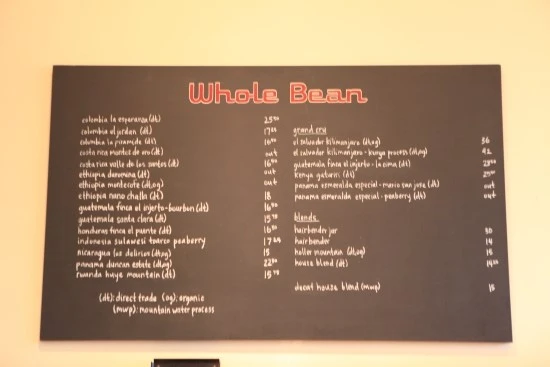 Whole Bean
colombia la esperanza (dt) 25⁵⁰
colombia el jordan (dt) 17
colombia la piramide (dt) 16⁵⁰
costa rica montes de oro (dt) out
costa rica valle de los santos (dt) 16⁵⁰
ethiopia deromina (dt) out
ethiopia montecafe (dt,og) out
ethiopia nano challa (dt) 18
guatemala finca el injerto-bourbon (dt) 16⁵⁰
guatemala santa clara (dt) 15
honduras finca el puente (dt) 16⁵⁰
indonesia sulawesi toarco peaberry 17
nicaragua las delicias (dt,og) 15
panama duncan estate (dt,og) 22⁵⁰
rwanda huye mountain (dt) 15
(dt): direct trade (og): organic
(mwp): mountain water process
grand cru
el salvador kilimanjaro (dt,og) 36
el salvador kilimanjaro - kenya process (dt,og) 42
guatemala finca el injerto - la cima (dt)
kenya (dt)
panama esmeralda especial - mario san jose (dt) out
panama esmeralda especial - peaberry (dt) out
blends
hairbender jar 30
hairbender 14
holler mountain (dt,og) 15
house blend (dt) 14
decaf house blend (mwp) 15